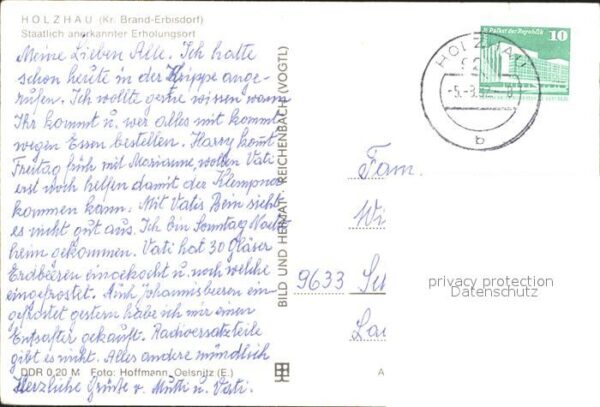 HOLZHAU (Kr. Brand-Erbisdorf)
Staatlich anerkannter Erholungsort
Meine Lieben Alle. Ich hatte
schon heute in der Krippe ange-
rufen. Ich wollte gerne wissen wann
Ihr kommt u. wer alles mit kommt
wegen Essen bestellen. Harry kommt
Freitag früh mit Marianne, wollen Vati
erst noch helfen damit der Klempner
kommen kann. Mit Vatis Bein sieht
es nicht gut aus. Ich bin Sonntag Nacht
heim gekommen. Vati hat 30 Gläser
Erdbeeren eingekocht u. noch welche
eingefrostet. Auch Johannisbeeren ein-
gefrostet gestern habe ich mir einen
Entsafter gekauft. Radioersatzteile
gibt es nicht. Alles andere mündlich
DDR 0,20 M Foto: Hoffmann, Oelsnitz (E.)
Herzliche Grüße v. Mutti u. Vati.
BILD UND HEIMAT REICHENBACH (VOGTL)
Palast der Republik
10
HOLZHAU
b
Fam.
Wi
9633
Lau
privacy protection
Datenschutz
A